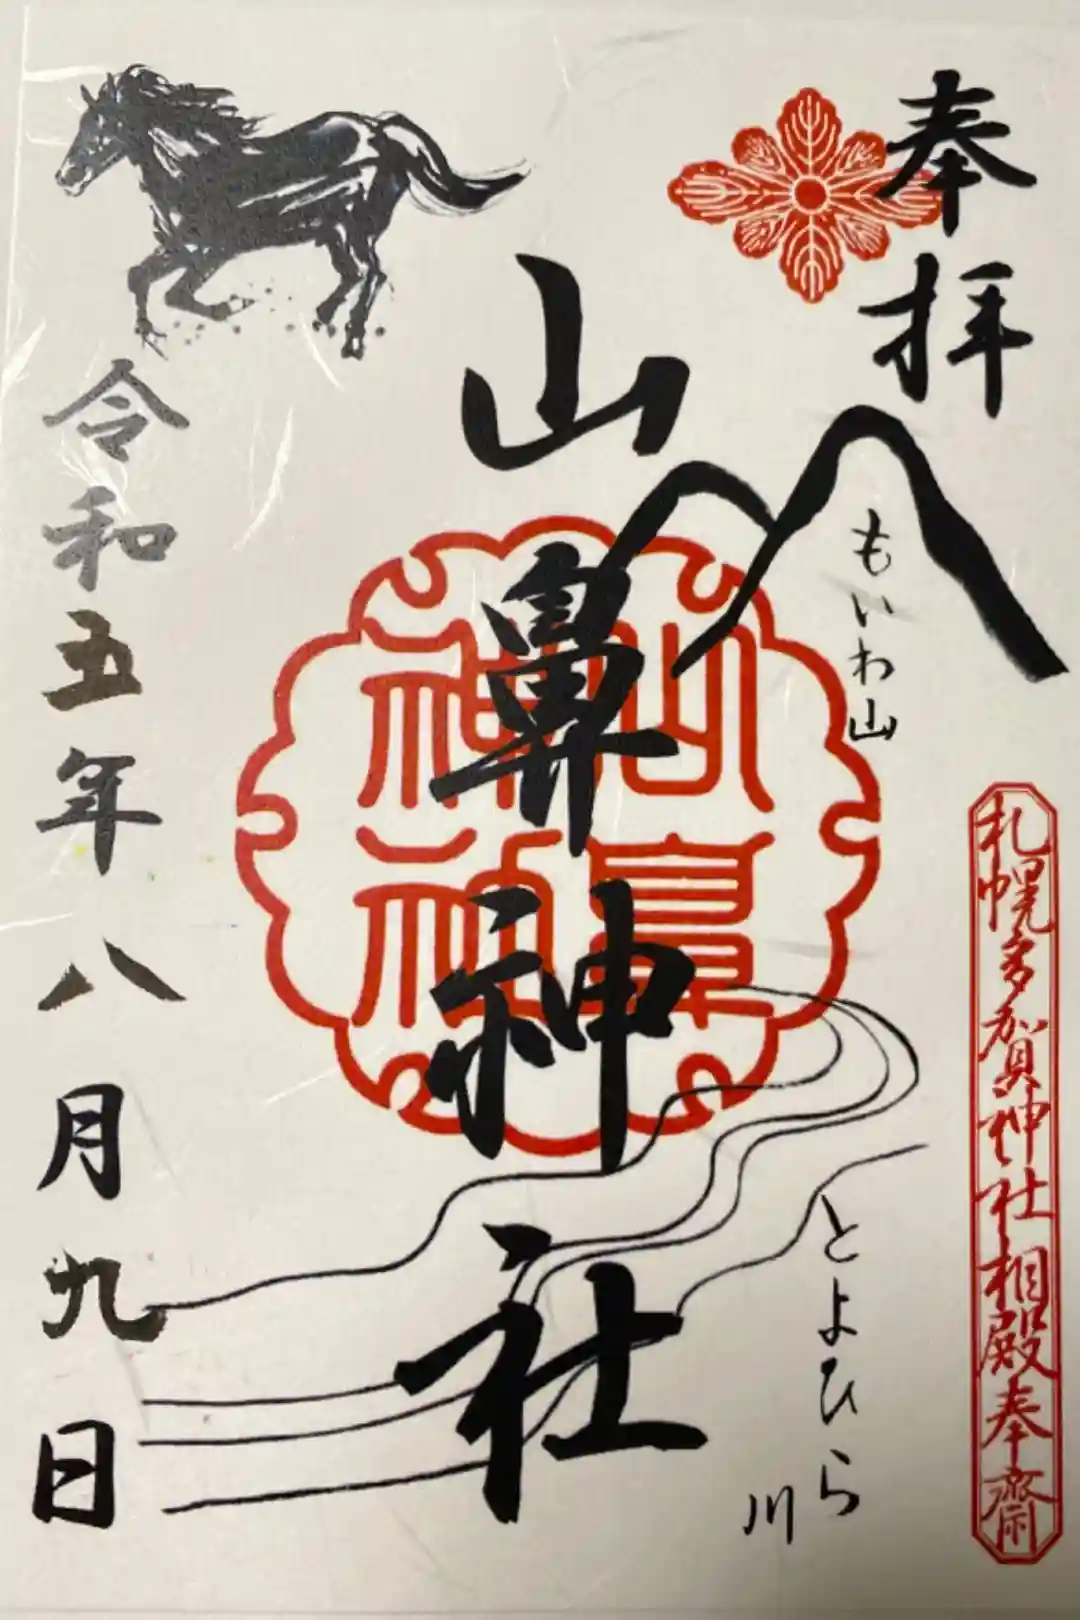 奉拝
もいわ山
札幌多賀神社相殿奉齋
山鼻神社
山鼻
神社
とよひら
川
令和五年八月九日